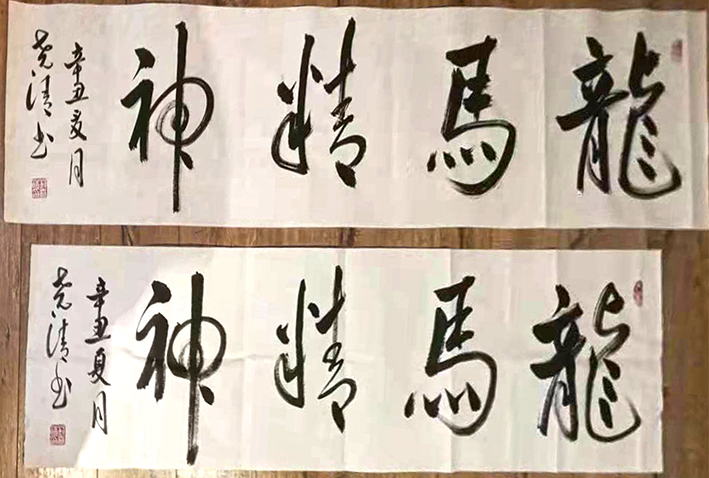 龍馬精神
辛丑夏月
尧清书
龍馬精神
辛丑夏月
尧清书